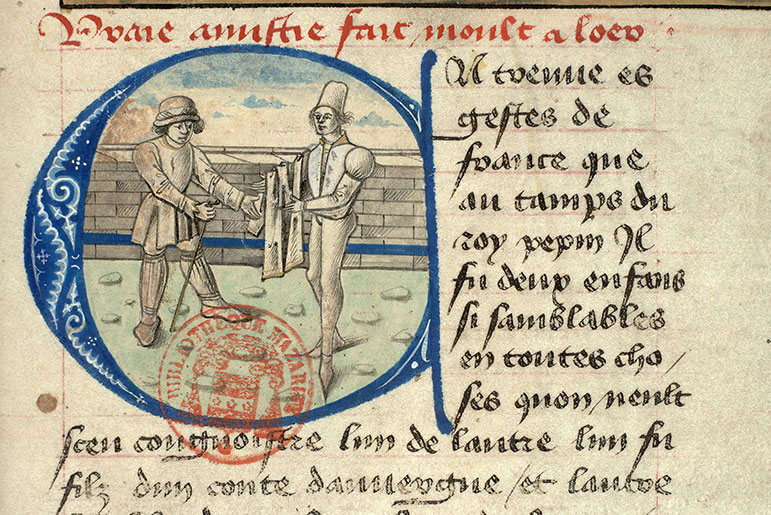 Vraie amistie fait moult a loer
ON treuue es
gestes de
france que
au tamps du
roy pepin Il
fu deux enfans
si samblables
en toutes cho/
ses quon neult
sceu congnoistre lun de lautre lun fu
filz dun conte dauuergne / et lautre
BIBLIOTHEQUE MAZARINE